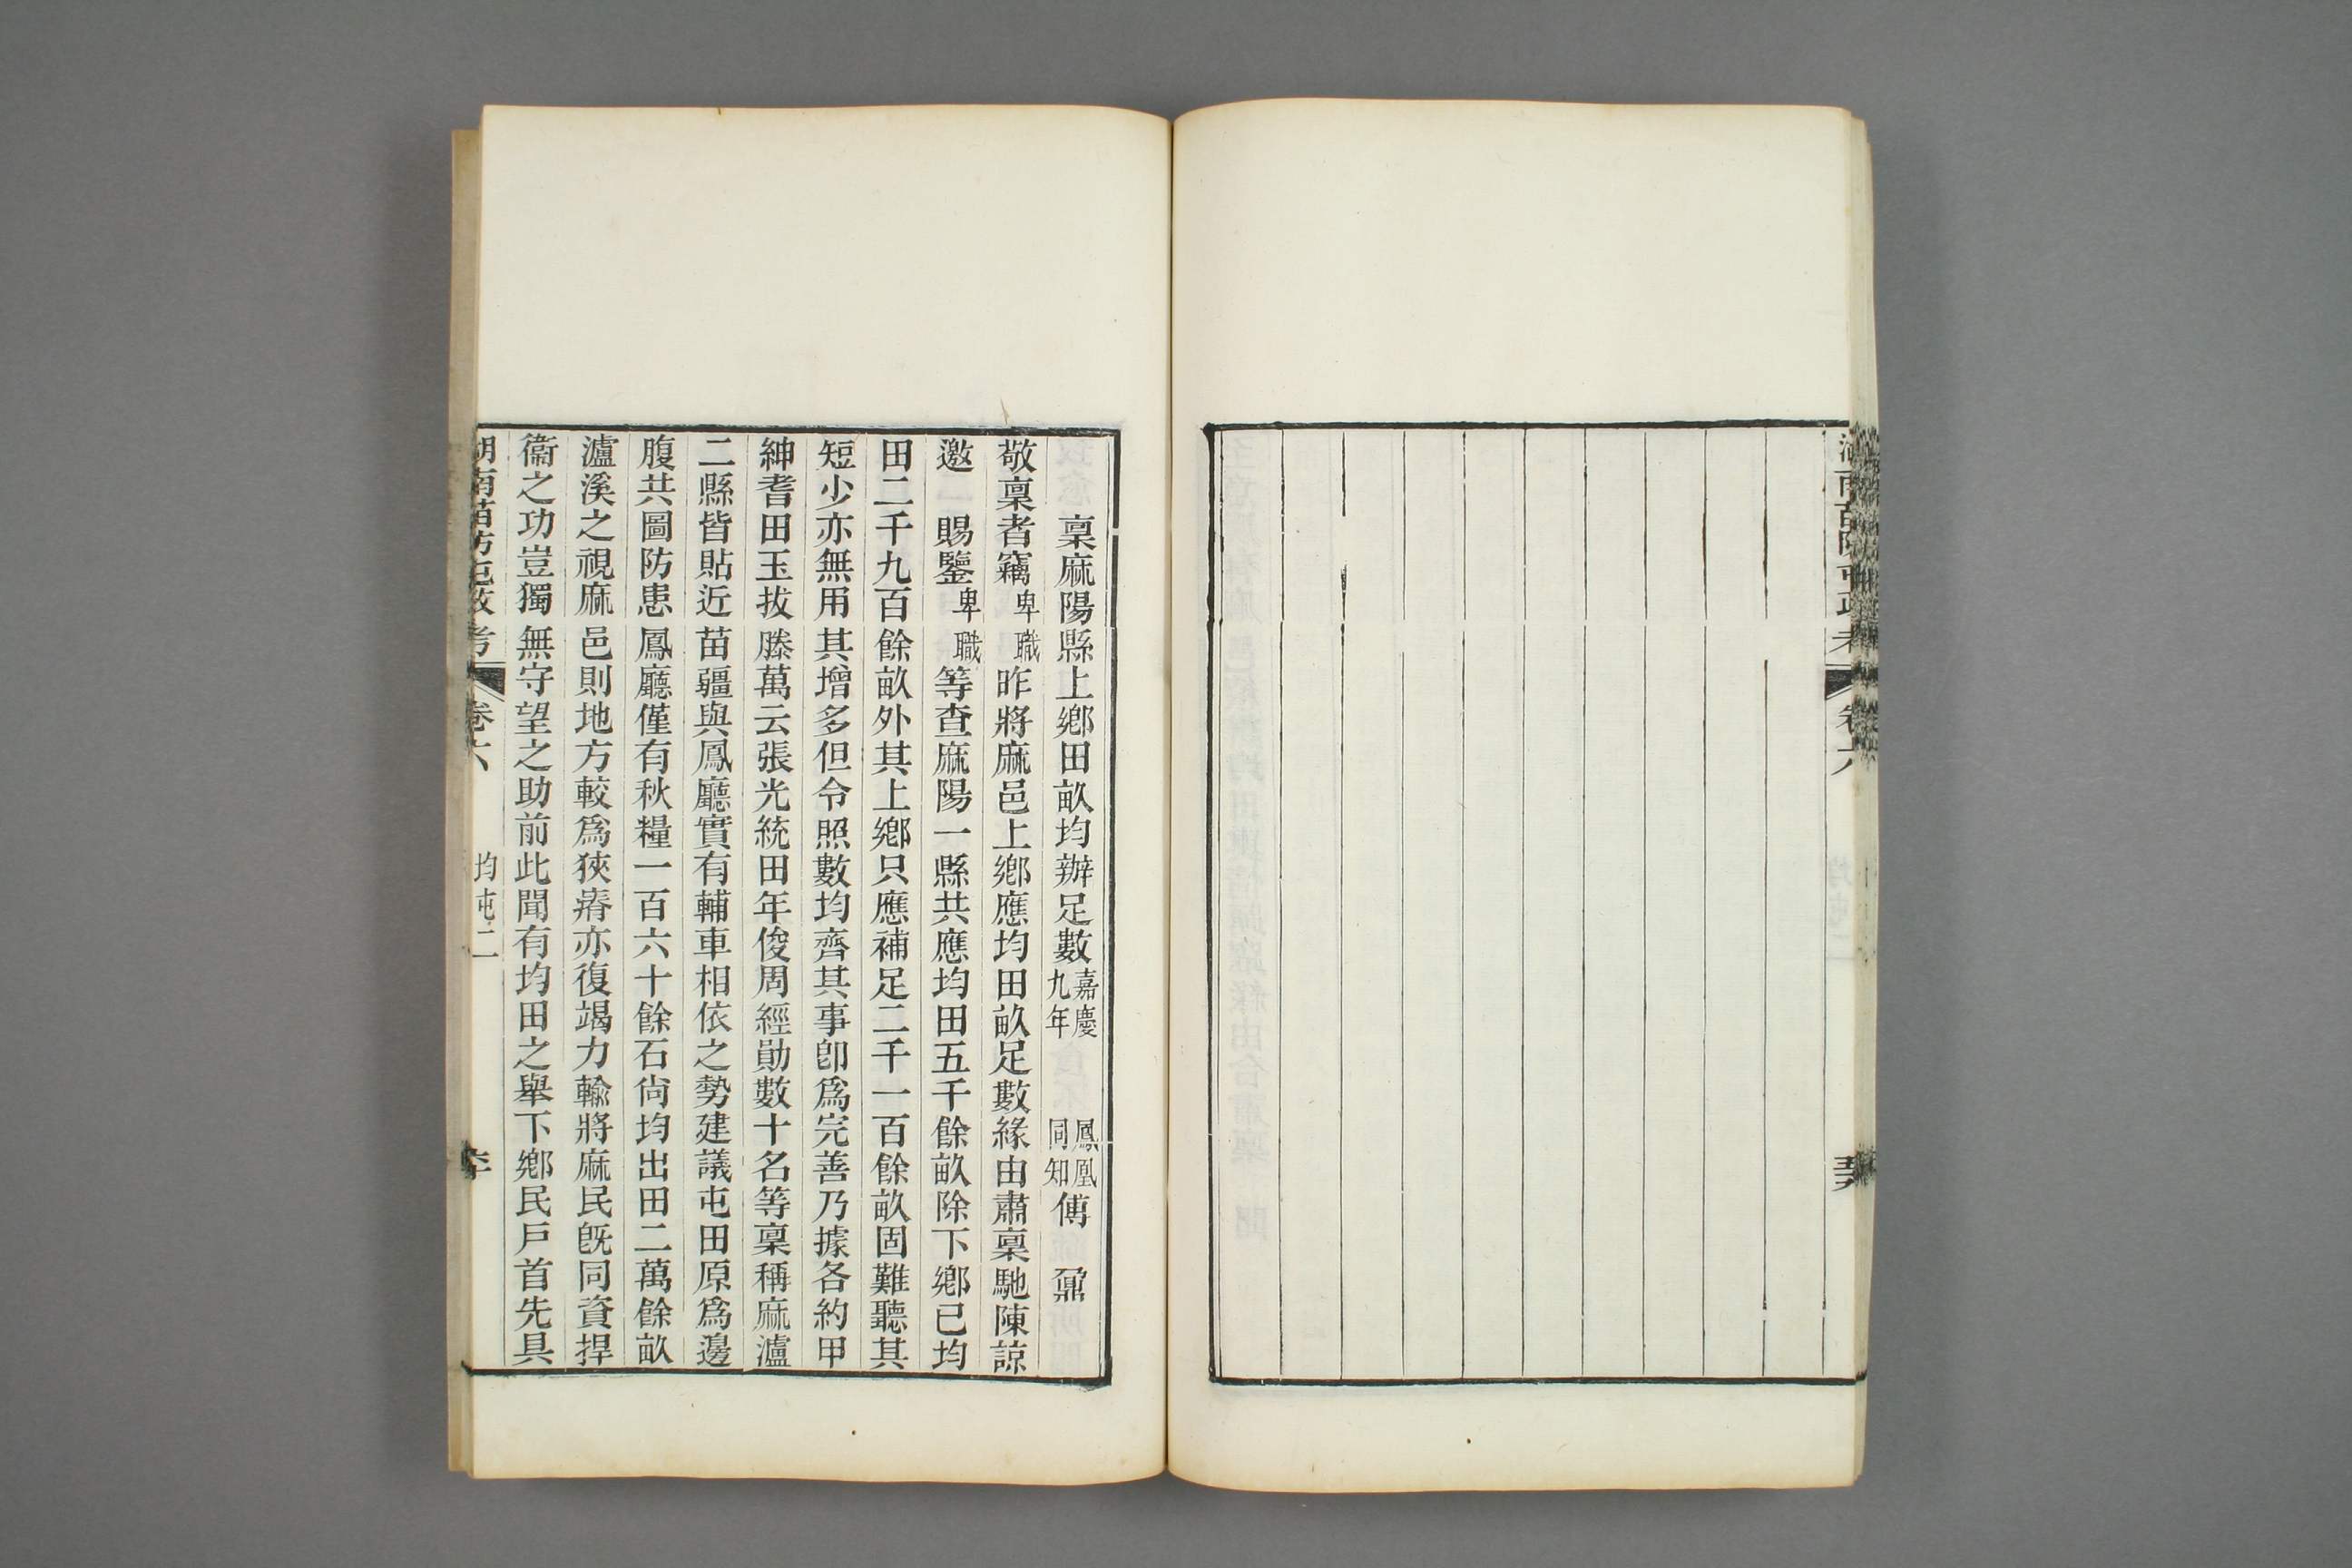 湖南苗防屯政考
卷六
稟麻陽縣上鄉田畝均辦足數嘉慶九年 鳳凰同知傅 鼐
敬稟者竊卑職昨將麻邑上鄉應均田畝足數緣由肅稟馳陳諒
邀 賜鑒卑職等查麻陽一縣共應均田五千餘畝除下鄉已均
田二千九百餘畝外其上鄉只應補足二千一百餘畝固難聽其
短少亦無用其增多但令照數均齊其事卽爲完善乃據各約甲
紳耆田玉拔滕萬云張光統田年俊周經勛數十名等稟稱麻瀘
二縣皆貼近苗疆與鳳廳實有輔車相依之勢建議屯田原爲邊
腹共圖防患鳳廳僅有秋糧一百六十餘石尙均出田二萬餘畝
瀘溪之視麻邑則地方較爲狹瘠亦復竭力輸將麻民旣同資捍
衞之功豈獨無守望之助前此聞有均田之舉下鄉民戶首先具
湖南苗防屯政考 卷六 均屯二